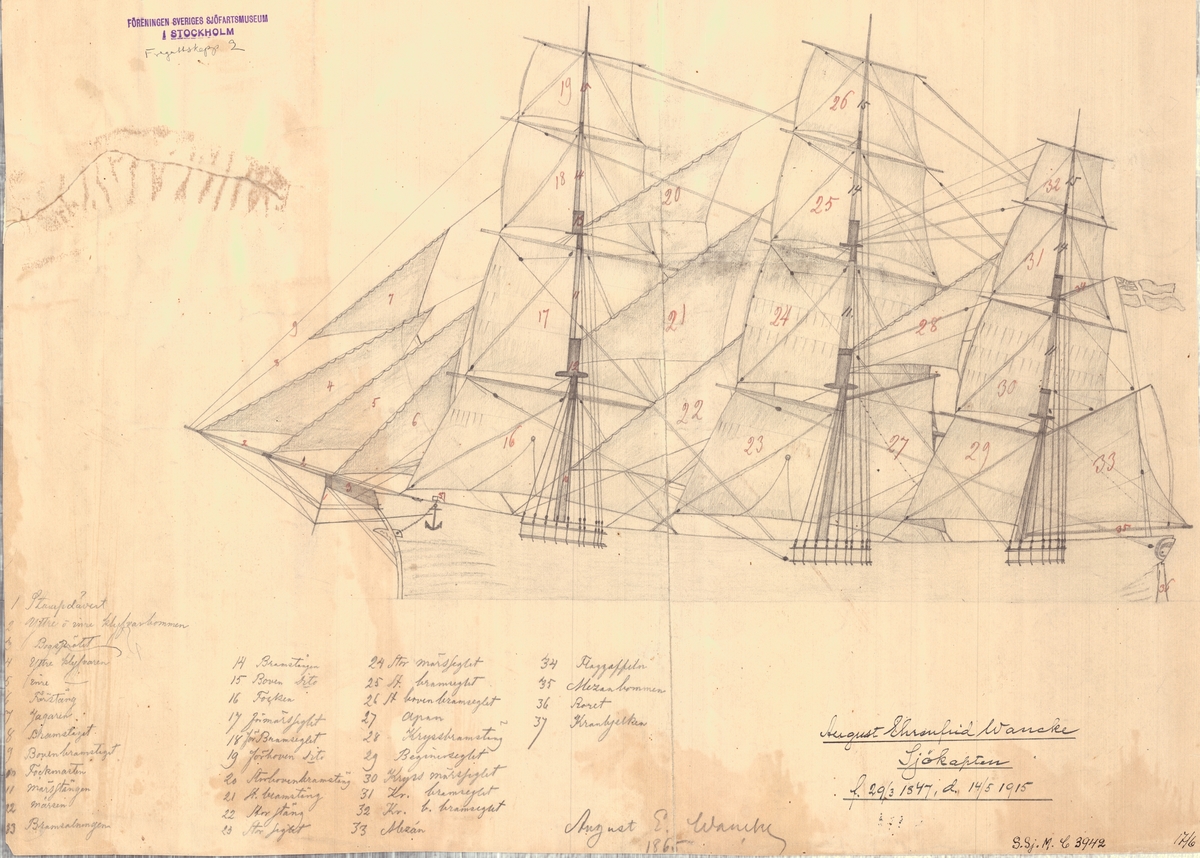 FÖRENINGEN SVERIGES SJÖFARTSMUSEUM
I STOCKHOLM
Fregattskepp 2
1 Stampdävert
2 Yttre o inre klyfvarbommen
3 Bogsprötet
4 Yttre klyfvaren
5 inre —
6 Förstäng
7 Jagaren
8 Bramstaget
9 Bovenbramstaget
10 Fockmasten
11 Märsstången
12 märsen
13 Bramsalningen
14 Bramstången
15 Boven dito
16 Focken
17 Förmärsseglet
18 För Bramseglet
19 Förboven dito
20 Storbovenbramstäng
21 St. bramstäng
22 Stor stäng
23 Stor seglet
24 Stor märsseglet
25 St. bramseglet
26 St bovenbramseglet
27 Apan
28 Kryssbramstäng
29 Beginerseglet
30 Kryss märsseglet
31 Kr. bramseglet
32 Kr. b. bramseglet
33 Mesan
34 Flaggaffeln
35 Mezanbommen
36 Roret
37 Kranbjelken
August E. Wancke
1865
August Ehrenfrid Wancke
Sjökapten
f. 29/3 1847, d. 14/5 1915
S.Sj.M. C 3942
17/6